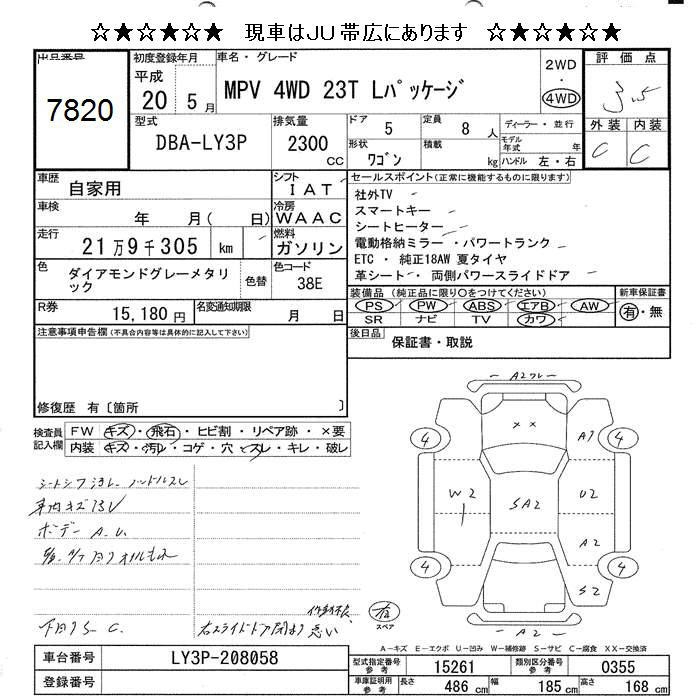 ☆★☆★☆★ 現車はJU帯広にあります ☆★☆★☆★
出品番号
7820
初度登録年月
平成
20 年 5 月
車名・グレード
MPV 4WD 23T Lパッケージ
2WD
・
4WD
評価点
3.5
外装 内装
C C
型式
DBA-LY3P
排気量
2300
CC
ドア
5
定員
8 人
形状
ワゴン
積載
kg
ディーラー・並行
モデル年式
年
ハンドル 左・右
車歴
自家用
シフト
IAT
車検
年 月( 日)
冷房
WAAC
走行
21万9千305 km
燃料
ガソリン
色
ダイアモンドグレーメタリック
色替
色コード
38E
R券
15,180円
名変通知期限
月 日
セールスポイント(正常に機能するものに限ります)
社外TV
スマートキー
シートヒーター
電動格納ミラー・パワートランク
ETC・純正18AW 夏タイヤ
革シート・両側パワースライドドア
装備品 (純正品に限り○をつけてください)
PS PW ABS エアB AW
SR ナビ TV カワ
新車保証書
有・無
後日品
保証書・取説
注意事項申告欄(不具合内容等は具体的に記入して下さい)
修復歴 有〔箇所 〕
検査員記入欄
FW キズ・飛石・ヒビ割・リペア跡・×要
内装 キズ・汚レ・コゲ・穴・スレ・キレ・破レ
ボデー A.U.
下回りS C.
右スライドドア閉まり悪い
作動不良
有
スペア
A2
A1
4
4
W2
SA2
U2
A2
4
4
S2
A2
A-キズ E-エクボ U-凹み W-補修跡 S-サビ C-腐食 XX-交換済
車台番号
LY3P-208058
登録番号
型式指定番号
参考
15261
類別区分番号
参考
0355
車庫証明用
参考
長さ 486 cm
幅 185 cm
高さ 168 cm